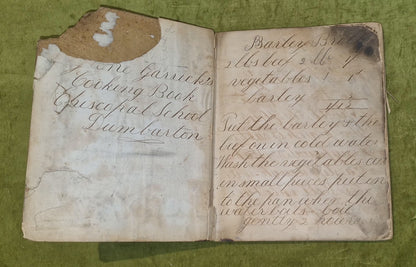 Garrick's
Cooking Book
Episcopal School
Dumbarton
Barley Bro
2 lbs beef 2 lb
vegetables 1
barley
Put the barley & the
beef on in cold water
Wash the vegetables cut
in small pieces put in
to the pan when the
water boils boil
gently 2 hours